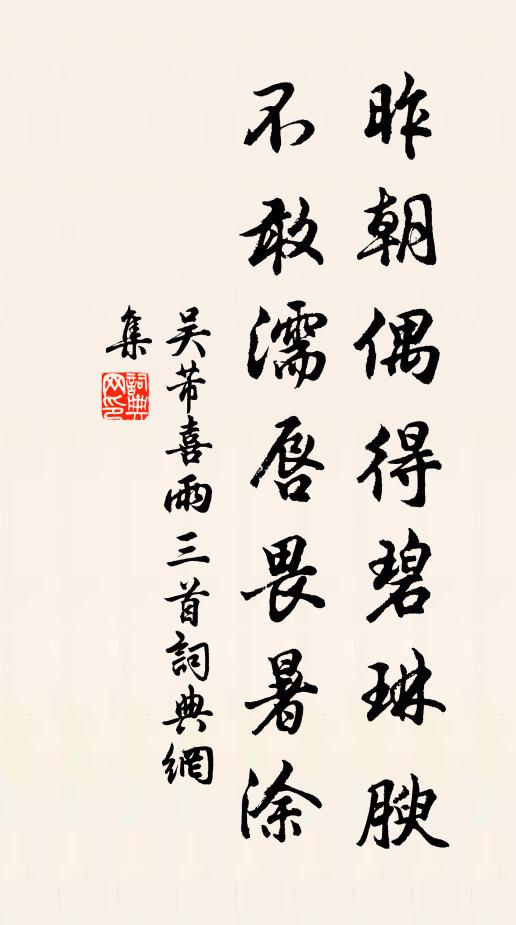 昨朝偶得碧琳腴
不敢濡唇畏暑涂
吴芾喜雨三首詞典網
集
詞典
网印